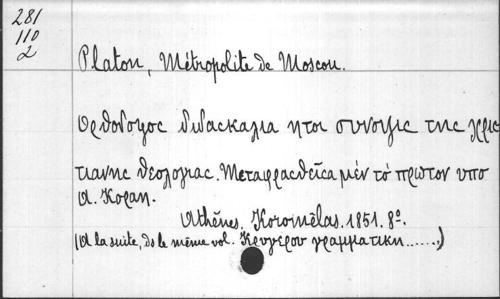 281
110
2
Platon, Métropolite de Moscou.
Ορθοδοξος διδασκαλια ητοι συνοψις της χρισ
τιανης θεολογιας. Μεταφρασθεῖσα μέν τὸ πρωτον υπο
Α. Κοραη.
Athènes. Koromélas. 1851. 8º.
(A la suite, ds le même vol. Κρυγερου γραμματικη......,)